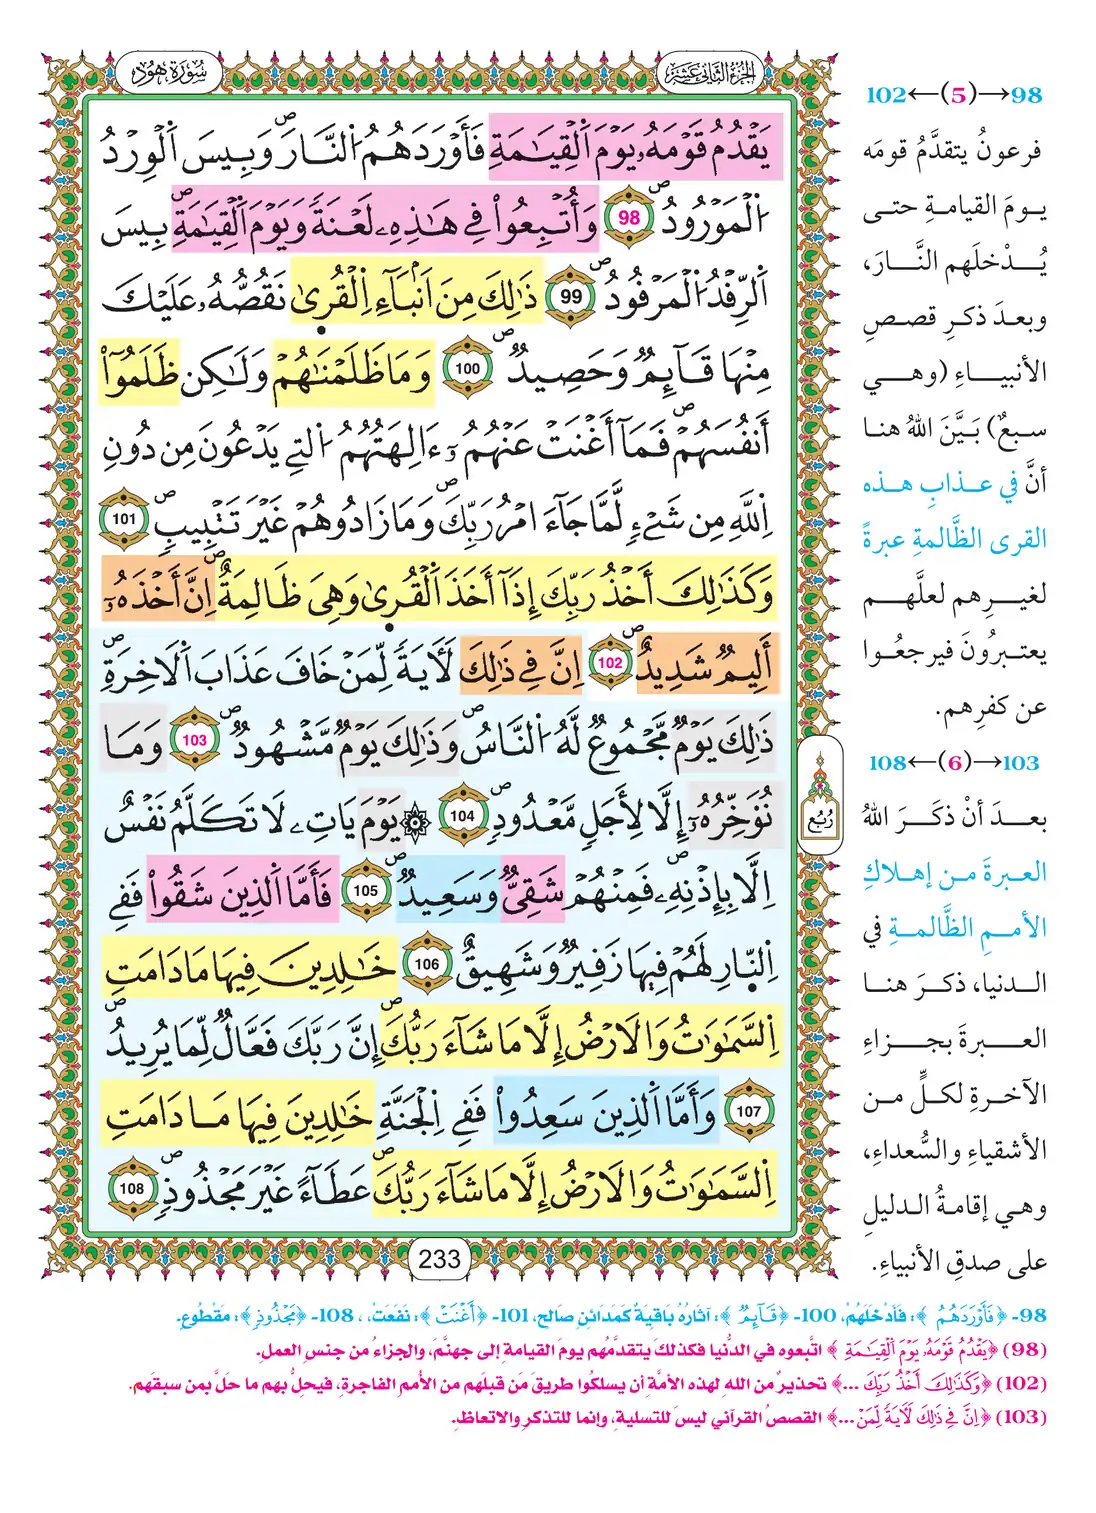 سُورَةُ هُود
الجزء الثاني عشر
يَقْدُمُ قَوْمَهُۥ يَوْمَ اَ۬لْقِيَٰمَةِ فَأَوْرَدَهُمُ اُ۬لنَّارَۖ وَبِيسَ اَ۬لْوِرْدُ
اُ۬لْمَوْرُودُۖ 98 وَأُتْبِعُواْ فِي هَٰذِهِۦ لَعْنَةٗ وَيَوْمَ اَ۬لْقِيَٰمَةِۖ بِيسَ
اَ۬لرِّفْدُ اُ۬لْمَرْفُودُۖ 99 ذَٰلِكَ مِنَ اَنۢبَآءِ اِ۬لْقُر۪يٰ نَقُصُّهُۥ عَلَيْكَۖ
مِنْهَا قَآئِمٞ وَحَصِيدٞۖ 100 وَمَا ظَلَمْنَٰهُمْ وَلَٰكِن ظَلَمُوٓاْ
أَنفُسَهُمْۖ فَمَآ أَغْنَتْ عَنْهُمُۥٓ ءَالِهَتُهُمُ اُ۬لتِے يَدْعُونَ مِن دُونِ
اِ۬للَّهِ مِن شَےْءٖ لَّمَّا جَآءَ امْرُ رَبِّكَۖ وَمَا زَادُوهُمْ غَيْرَ تَتْبِيبٖۖ 101
وَكَذَٰلِكَ أَخْذُ رَبِّكَ إِذَآ أَخَذَ اَ۬لْقُر۪يٰ وَهْيَ ظَٰلِمَةٌۖ اِنَّ أَخْذَهُۥٓ
أَلِيمٞ شَدِيدٌۖ 102 اِنَّ فِي ذَٰلِكَ لَأٓيَةٗ لِّمَنْ خَافَ عَذَابَ اَ۬لَاخِرَةِۖ
ذَٰلِكَ يَوْمٞ مَّجْمُوعٞ لَّهُ اُ۬لنَّاسُۖ وَذَٰلِكَ يَوْمٞ مَّشْهُودٞۖ 103 وَمَا
نُؤَخِّرُهُۥٓ إِلَّا لِأَجَلٖ مَّعْدُودٖۖ 104 ۞ يَوْمَ يَاتِۦ لَا تَكَلَّمُ نَفْسٌ
اِلَّا بِإِذْنِهِۦۖ فَمِنْهُمْ شَقِيّٞ وَسَعِيدٞۖ 105 فَأَمَّا اَ۬لذِينَ شَقُواْ فَفِے
اِ۬لنّ۪ارِ لَهُمْ فِيهَا زَفِيرٞ وَشَهِيقٌ 106 خَٰلِدِينَ فِيهَا مَا دَامَتِ
اِ۬لسَّمَٰوَٰتُ وَالَارْضُ إِلَّا مَا شَآءَ رَبُّكَۖ إِنَّ رَبَّكَ فَعَّالٞ لِّمَا يُرِيدُۖ
107 وَأَمَّا اَ۬لذِينَ سَعِدُواْ فَفِے اِ۬لْجَنَّةِ خَٰلِدِينَ فِيهَا مَا دَامَتِ
اِ۬لسَّمَٰوَٰتُ وَالَارْضُ إِلَّا مَا شَآءَ رَبُّكَۖ عَطَآءً غَيْرَ مَجْذُوذٖۖ 108
رُبُع
233
98→(5)←102
فرعونُ يتقدَّمُ قومَه
يومَ القيامةِ حتى
يُدْخلَهم النَّارَ،
وبعدَ ذكرِ قصصِ
الأنبياءِ (وهي
سبعٌ) بَيَّنَ اللهُ هنا
أنَّ في عذابِ هذه
القرى الظَّالمةِ عبرةً
لغيرِهم لعلَّهم
يعتبرُونَ فيرجعُوا
عن كفرِهم.
103→(6)←108
بعدَ أنْ ذكَرَ اللهُ
العبرةَ من إهلاكِ
الأممِ الظَّالمةِ في
الدنيا، ذكرَ هنا
العبرةَ بجزاءِ
الآخرةِ لكلٍّ من
الأشقياءِ والسُّعداءِ،
وهي إقامةُ الدليلِ
على صدقِ الأنبياءِ.
98- ﴿فَأَوْرَدَهُمُ﴾: فَأَدْخَلَهُمْ، 100- ﴿قَآئِمٞ﴾: آثَارُهُ بَاقِيَةٌ كَمَدَائِنِ صَالِحٍ، 101- ﴿أَغْنَتْ﴾: نَفَعَتْ، ، 108- ﴿مَجْذُوذٖ﴾: مَقْطُوعٍ.
(98) ﴿يَقْدُمُ قَوْمَهُۥ يَوْمَ اَ۬لْقِيَٰمَةِ﴾ اتَّبعوه في الدُّنيا فكذلكَ يتقدَّمُهم يومَ القيامةِ إلى جهنَّمَ، والجزاءُ من جنسِ العملِ.
(102) ﴿وَكَذَٰلِكَ أَخْذُ رَبِّكَ ...﴾ تحذيرٌ من اللهِ لهذه الأمَّةِ أن يسلكُوا طريقَ مَن قبلَهم من الأممِ الفاجرةِ، فيحلُّ بهم ما حلَّ بمن سبقَهم.
(103) ﴿اِنَّ فِي ذَٰلِكَ لَأٓيَةٗ لِّمَنْ ...﴾ القصصُ القرآني ليسَ للتسليةِ، وإنما للتذكرِ والاتعاظِ.